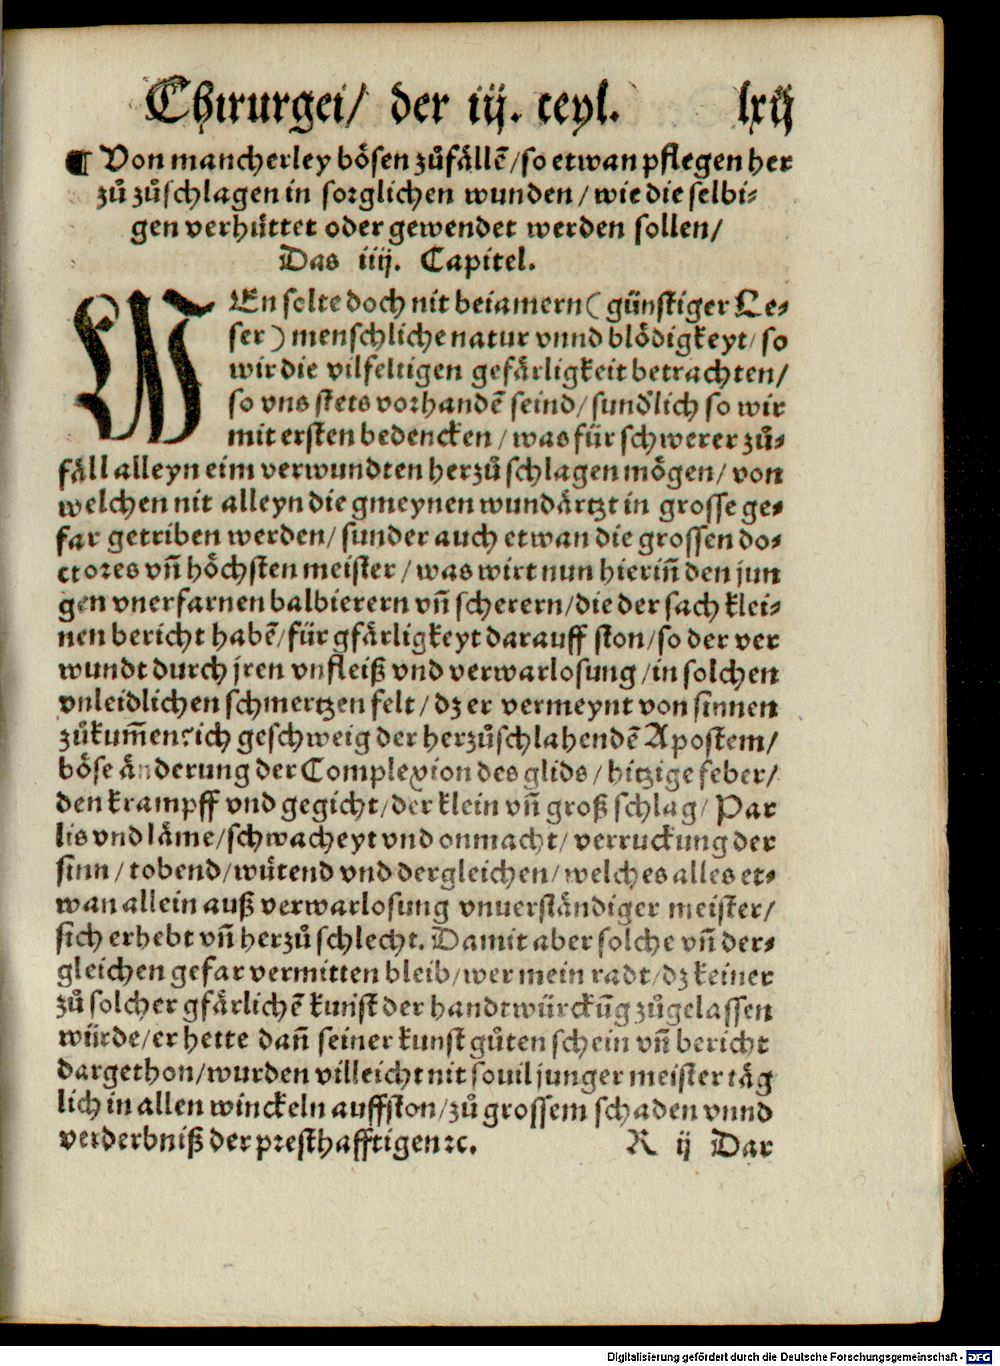 Chirurgei/ der iij. teyl. lxij
¶ Von mancherley bösen zůfällē/so etwan pflegen her
zů zůschlagen in sorglichen wunden/wie die selbi-
gen verhüttet oder gewendet werden sollen/
Das iiij. Capitel.
WEn solte doch nit beiamern (günstiger Le-
ser) menschliche natur vnnd blödigkeyt/so
wir die vilfeltigen gefärligkeit betrachten/
so vns stets vorhandē seind/sund'lich so wir
mit ersten bedencken/was für schwerer zů-
fäll alleyn eim verwundten herzů schlagen mögen/von
welchen nit alleyn die gmeynen wundärtzt in grosse ge-
far getriben werden/sunder auch etwan die grossen do-
ctores vñ höchsten meister/was wirt nun hieriñ den jun
gen vnerfarnen balbierern vñ scherern/die der sach klei-
nen bericht habē/für gfärligkeyt darauff ston/so der ver
wundt durch jren vnfleiß vnd verwarlosung/in solchen
vnleidlichen schmertzen felt/dz er vermeynt von sinnen
zůkum̄en? ich geschweig der herzůschlahendē Apostem/
böse änderung der Complexion des glids/hitzige feber/
den krampff vnd gegicht/der klein vñ groß schlag/Par
lis vnd läme/schwacheyt vnd onmacht/verruckung der
sinn/tobend/wütend vnd dergleichen/welches alles et-
wan allein auß verwarlosung vnuerständiger meister/
sich erhebt vñ herzů schlecht. Damit aber solche vñ der-
gleichen gefar vermitten bleib/wer mein radt/dz keiner
zů solcher gfärlichē kunst der handtwürckūg zůgelassen
würde/er hette dañ seiner kunst gůten schein vñ bericht
dargethon/wurden villeicht nit souil junger meister täg
lich in allen winckeln auffston/zů grossem schaden vnnd
verderbniß der presthafftigen ꝛc. R ij Dar
Digitalisierung gefördert durch die Deutsche Forschungsgemeinschaft - DFG